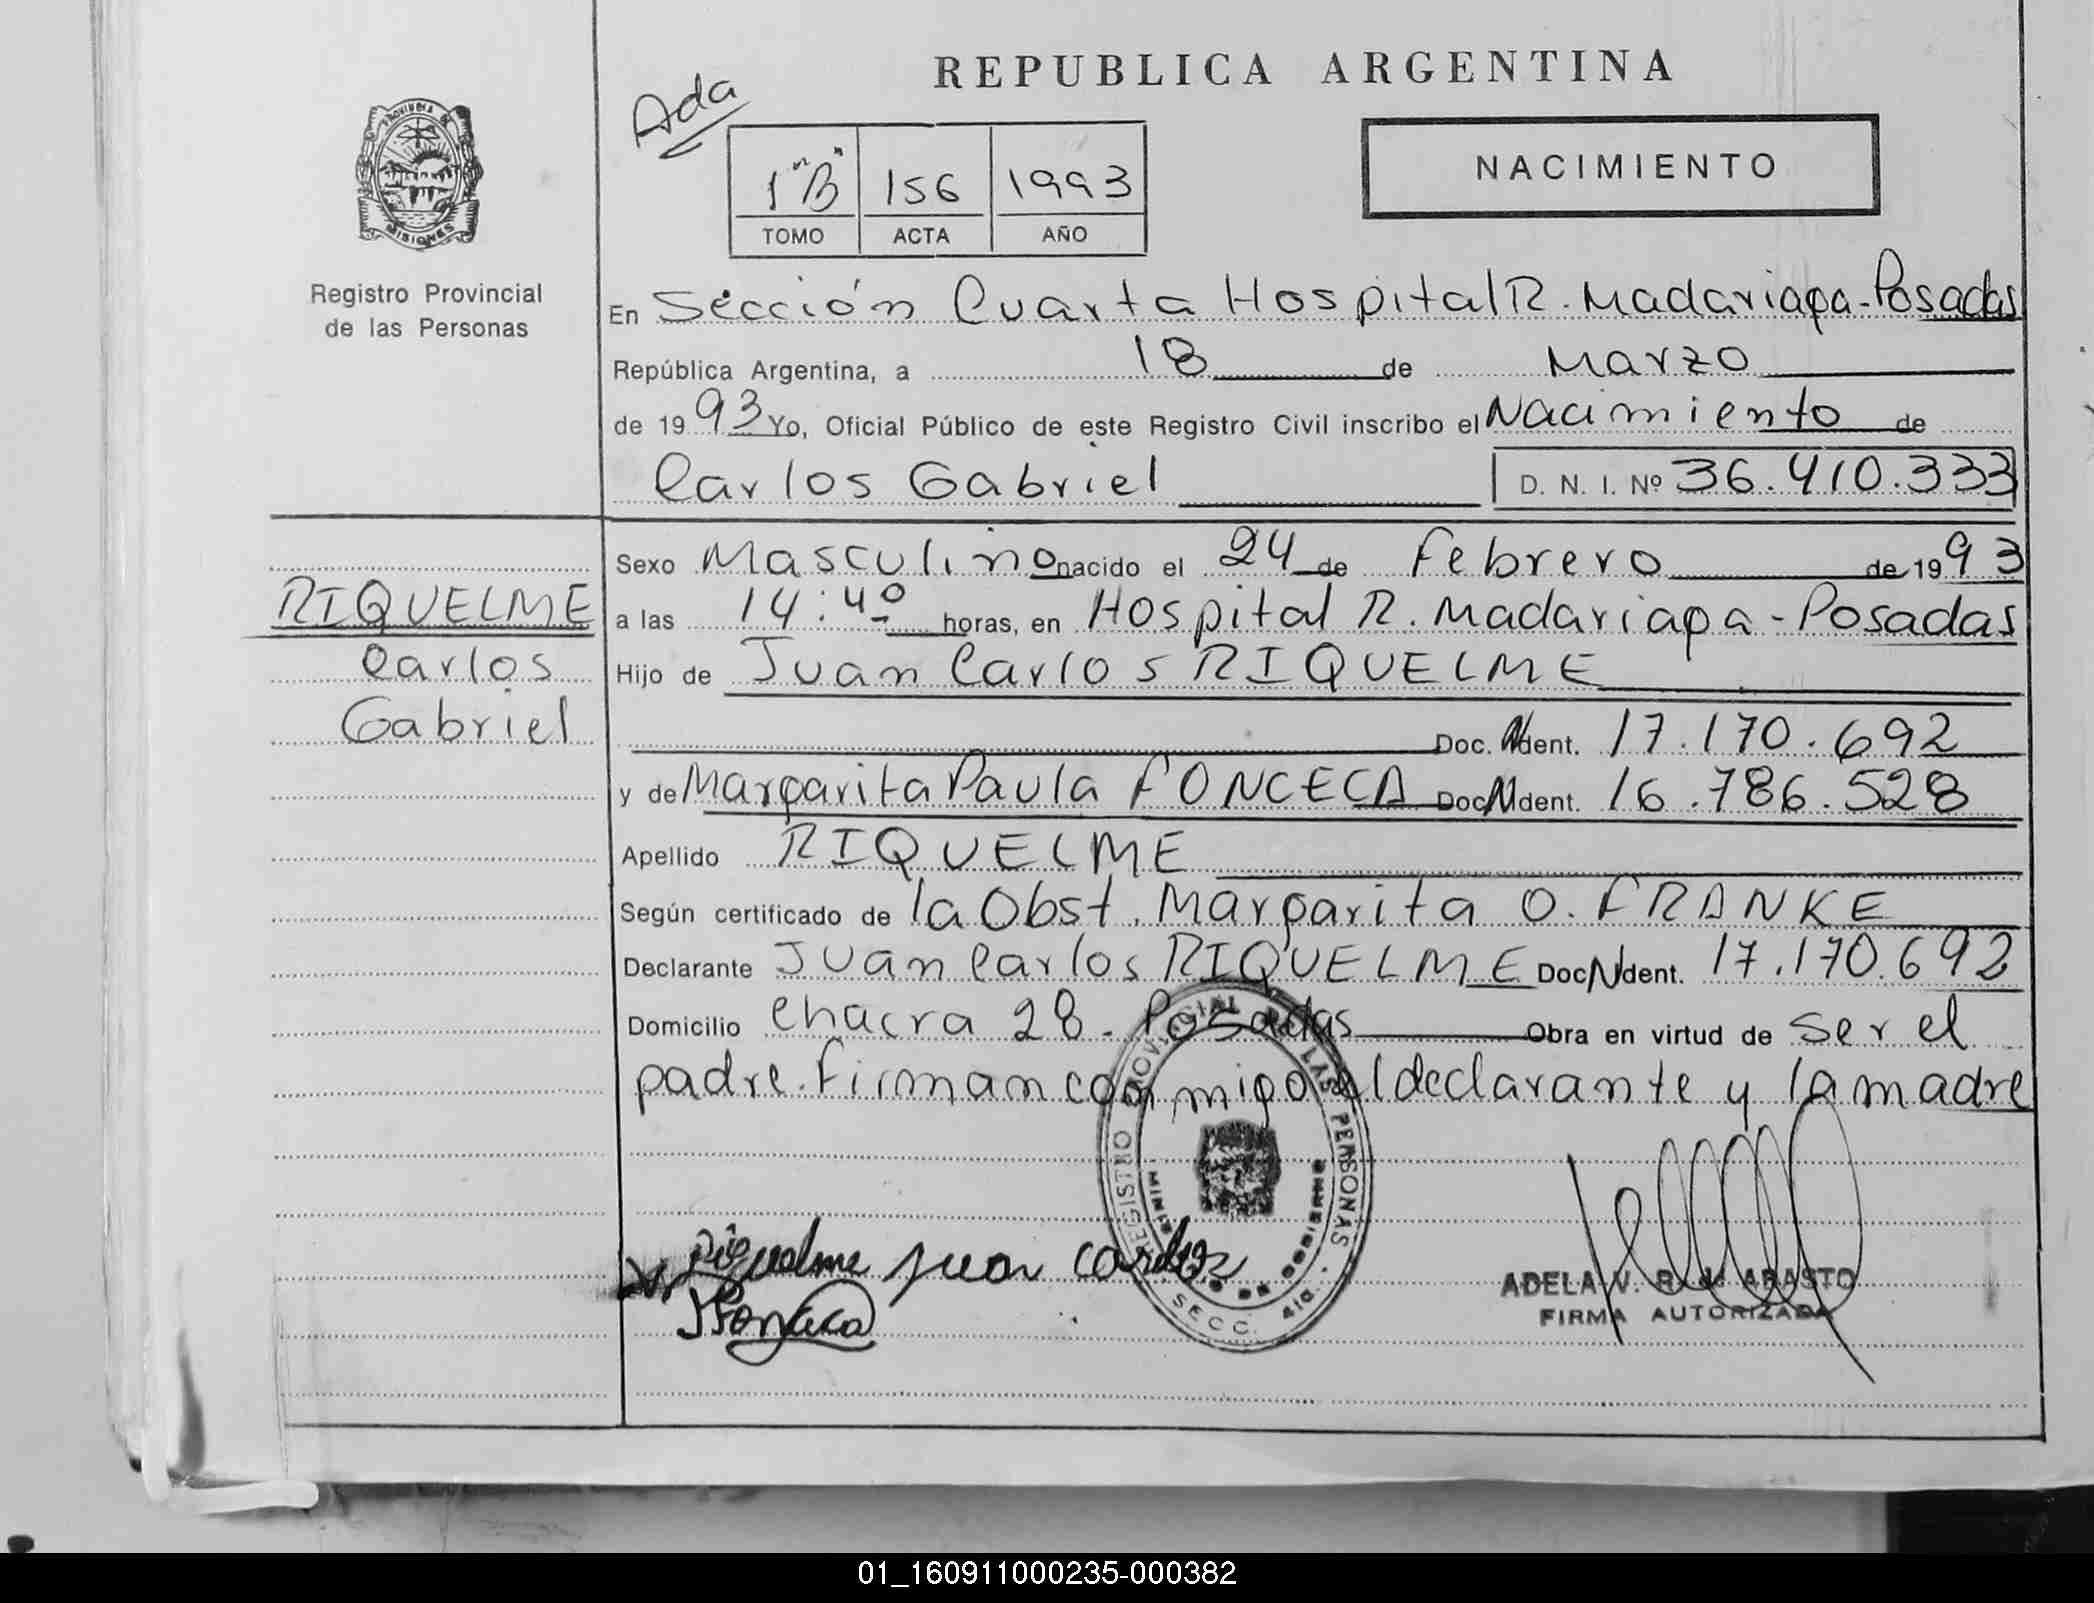 REPUBLICA ARGENTINA
Ada
NACIMIENTO
1 "B" 156 1993
TOMO ACTA AÑO
PROVINCIA DE
MISIONES
Registro Provincial
de las Personas
En Sección Cuarta Hospital R. Madariaga - Posadas
República Argentina, a 18 de Marzo
de 1993 Yo, Oficial Público de este Registro Civil inscribo el Nacimiento de
Carlos Gabriel D. N. I. Nº 36.410.333
RIQUELME
Carlos
Gabriel
Sexo Masculino nacido el 24 de Febrero de 1993
a las 14:40 horas, en Hospital R. Madariaga - Posadas
Hijo de Juan Carlos RIQUELME
Doc. Ident. 17.170.692
y de Margarita Paula FONCECA Doc. Ident. 16.786.528
Apellido RIQUELME
Según certificado de la Obst. Margarita O. FRANKE
Declarante Juan Carlos RIQUELME Doc. Ident. 17.170.692
Domicilio Chacra 28. Posadas Obra en virtud de ser el
padre. Firman conmigo el declarante y la madre
REGISTRO PROVINCIAL DE LAS PERSONAS
DE GOBIERNO
SECC. 4ta.
Riquelme Juan Carlos
Fonseca
ADELA V. R. de ARASTO
FIRMA AUTORIZADA
01_160911000235-000382